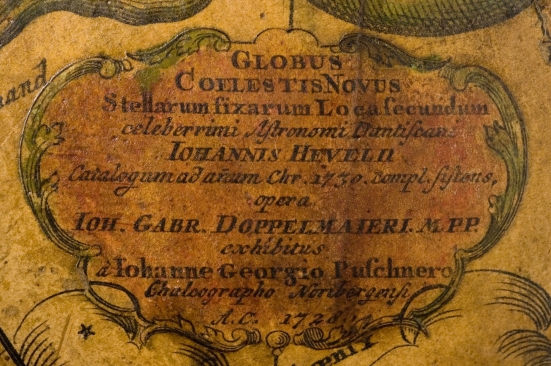 and
GLOBUS
COELESTIS NOVUS
Stellarum fixarum Loca secundum
celeberrimi Astronomi Dantiscani
IOHANNIS HEVELII
Catalogum ad añum Chr. 1730. compl. sistens,
opera
IOH. GABR. DOPPELMAIERI. M.PP.
exhibitus
à Iohanne Georgio Puschnero
Chalcographo Noribergensi
A.C. 1728.